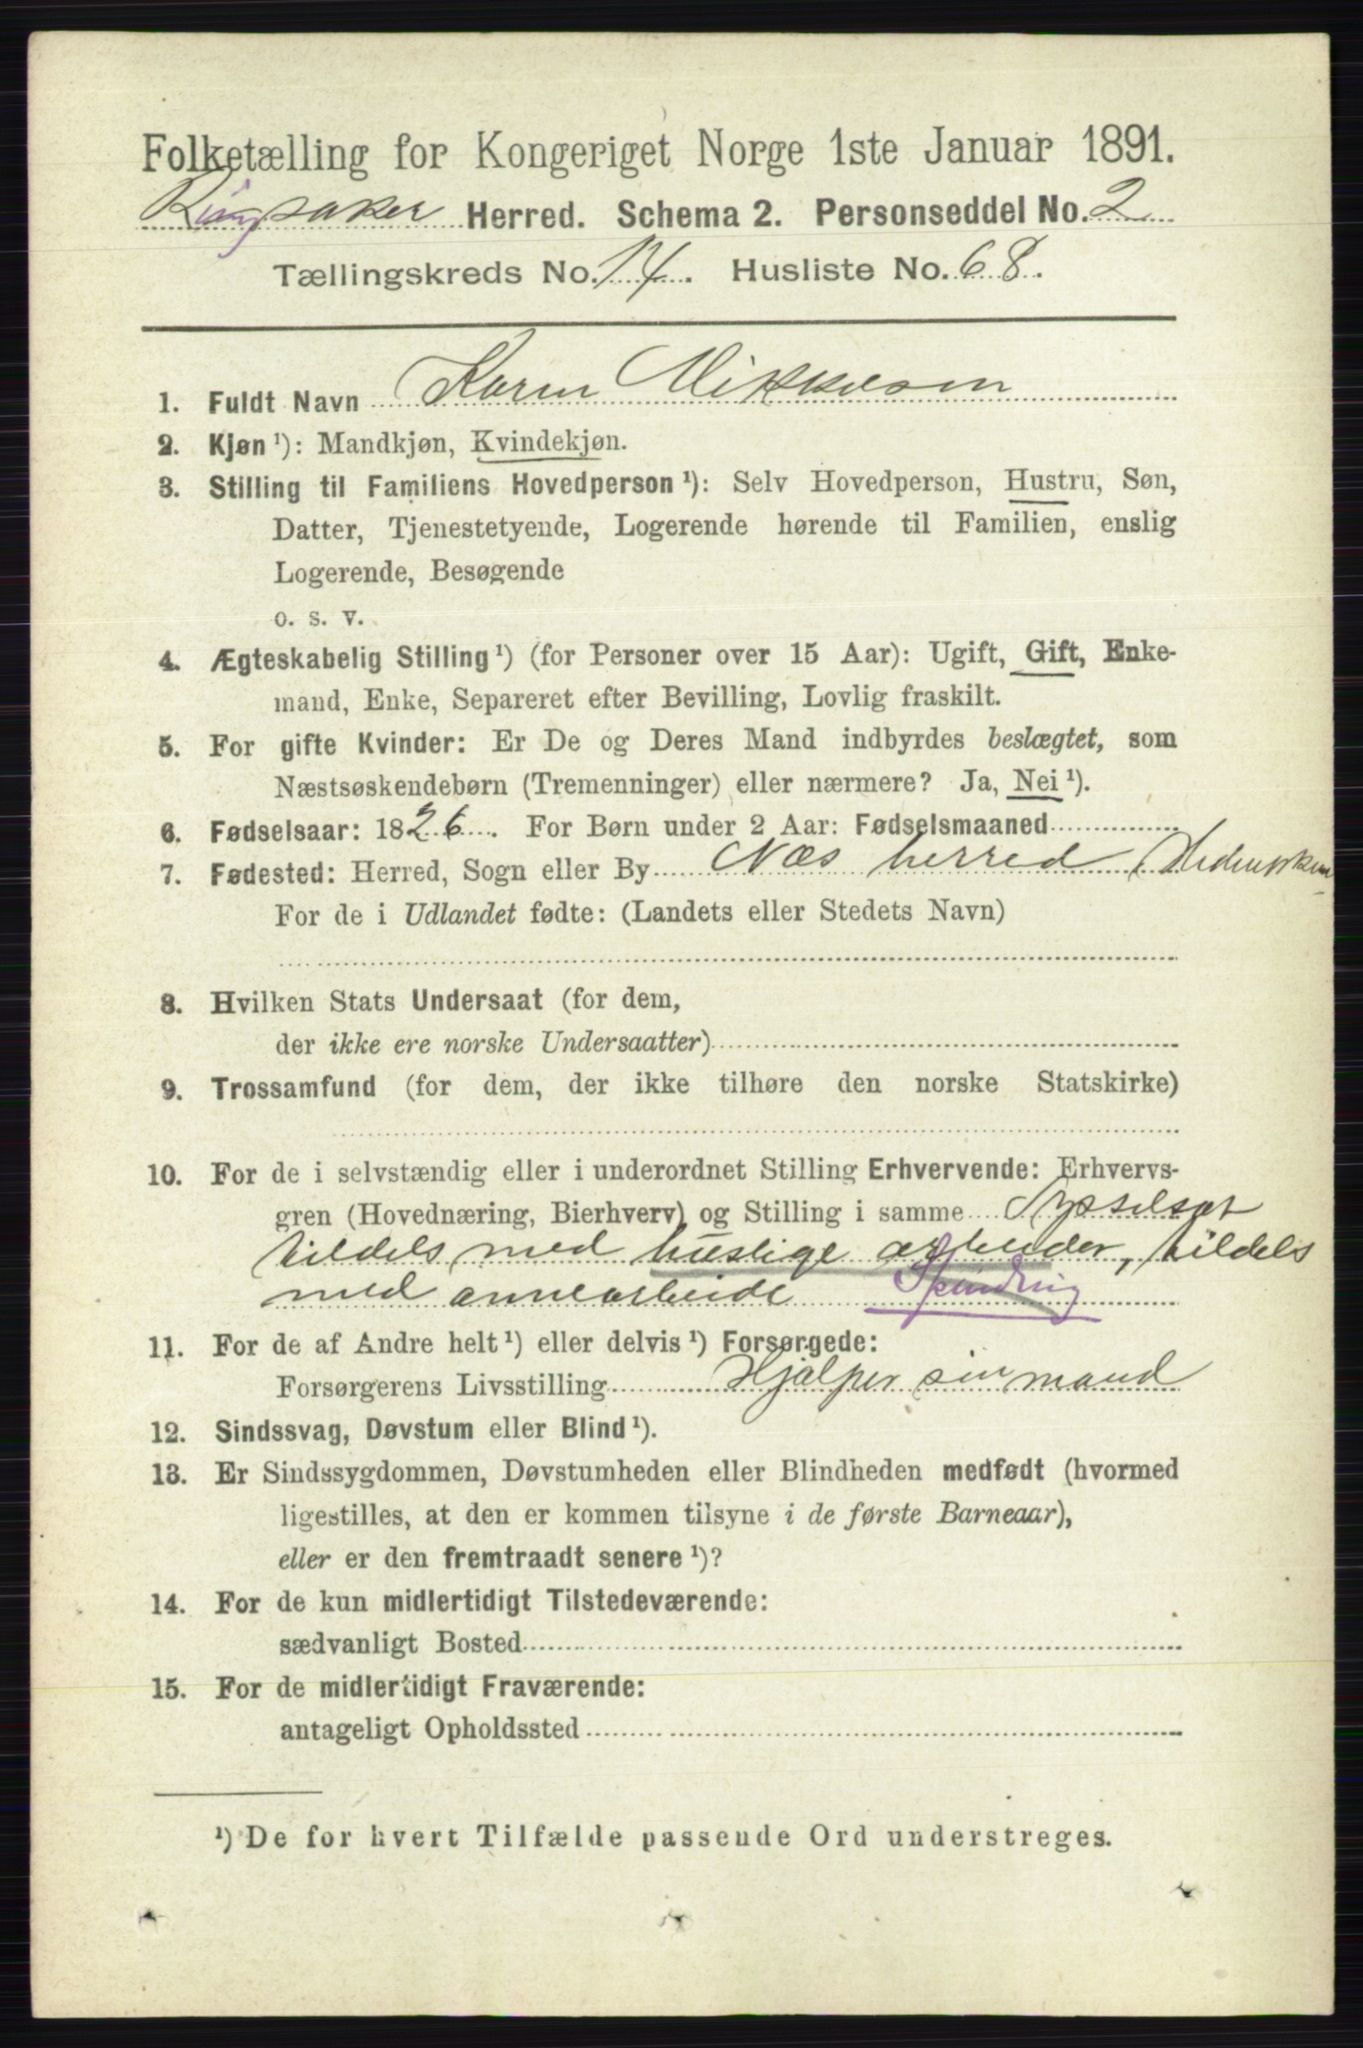 Folketælling for Kongeriget Norge 1ste Januar 1891.
Ringsaker Herred. Schema 2. Personseddel No. 2
Tællingskreds No. 14. Husliste No. 68.
1. Fuldt Navn Karen Mikkelsen
2. Kjøn ¹): Mandkjøn, Kvindekjøn.
3. Stilling til Familiens Hovedperson ¹): Selv Hovedperson, Hustru, Søn,
Datter, Tjenestetyende, Logerende hørende til Familien, enslig
Logerende, Besøgende
o. s. v.
4. Ægteskabelig Stilling ¹) (for Personer over 15 Aar): Ugift, Gift, Enke-
mand, Enke, Separeret efter Bevilling, Lovlig fraskilt.
5. For gifte Kvinder: Er De og Deres Mand indbyrdes beslægtet, som
Næstsøskendebørn (Tremenninger) eller nærmere? Ja, Nei ¹).
6. Fødselsaar: 1826. For Børn under 2 Aar: Fødselsmaaned
7. Fødested: Herred, Sogn eller By Næs herred, Hedemarken
For de i Udlandet fødte: (Landets eller Stedets Navn)
8. Hvilken Stats Undersaat (for dem,
der ikke ere norske Undersaatter)
9. Trossamfund (for dem, der ikke tilhøre den norske Statskirke)
10. For de i selvstændig eller i underordnet Stilling Erhvervende: Erhvervs-
gren (Hovednæring, Bierhverv) og Stilling i samme Sysselsat
tildels med huslige arbeider, tildels
med annearbeide Spinding
11. For de af Andre helt ¹) eller delvis ¹) Forsørgede:
Forsørgerens Livsstilling Hjælper sin mand
12. Sindssvag, Døvstum eller Blind ¹).
13. Er Sindssygdommen, Døvstumheden eller Blindheden medfødt (hvormed
ligestilles, at den er kommen tilsyne i de første Barneaar),
eller er den fremtraadt senere ¹)?
14. For de kun midlertidigt Tilstedeværende:
sædvanligt Bosted
15. For de midlertidigt Fraværende:
antageligt Opholdssted
¹) De for hvert Tilfælde passende Ord understreges.